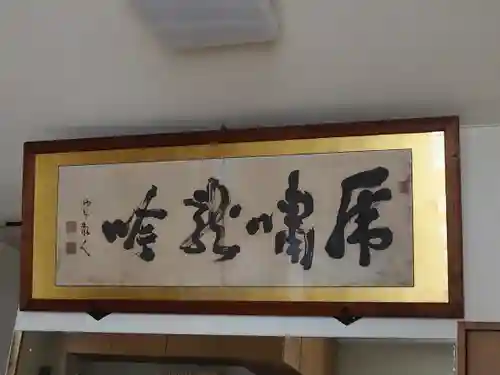 虎嘯龍吟